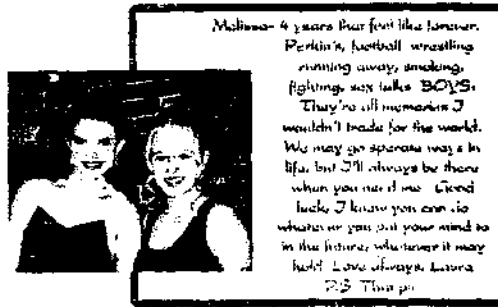 Melissa- 4 years that feel like forever.
Perkin's, football, wrestling
running away, smoking,
fighting, sex talks BOYS.
They're all memories I
wouldn't trade for the world.
We may go sperate ways in
life, but I'll always be there
when you need me. Good
luck, I know you can do
whatever you put your mind to
in the future, whatever it may
hold. Love always, Laura
P.S.